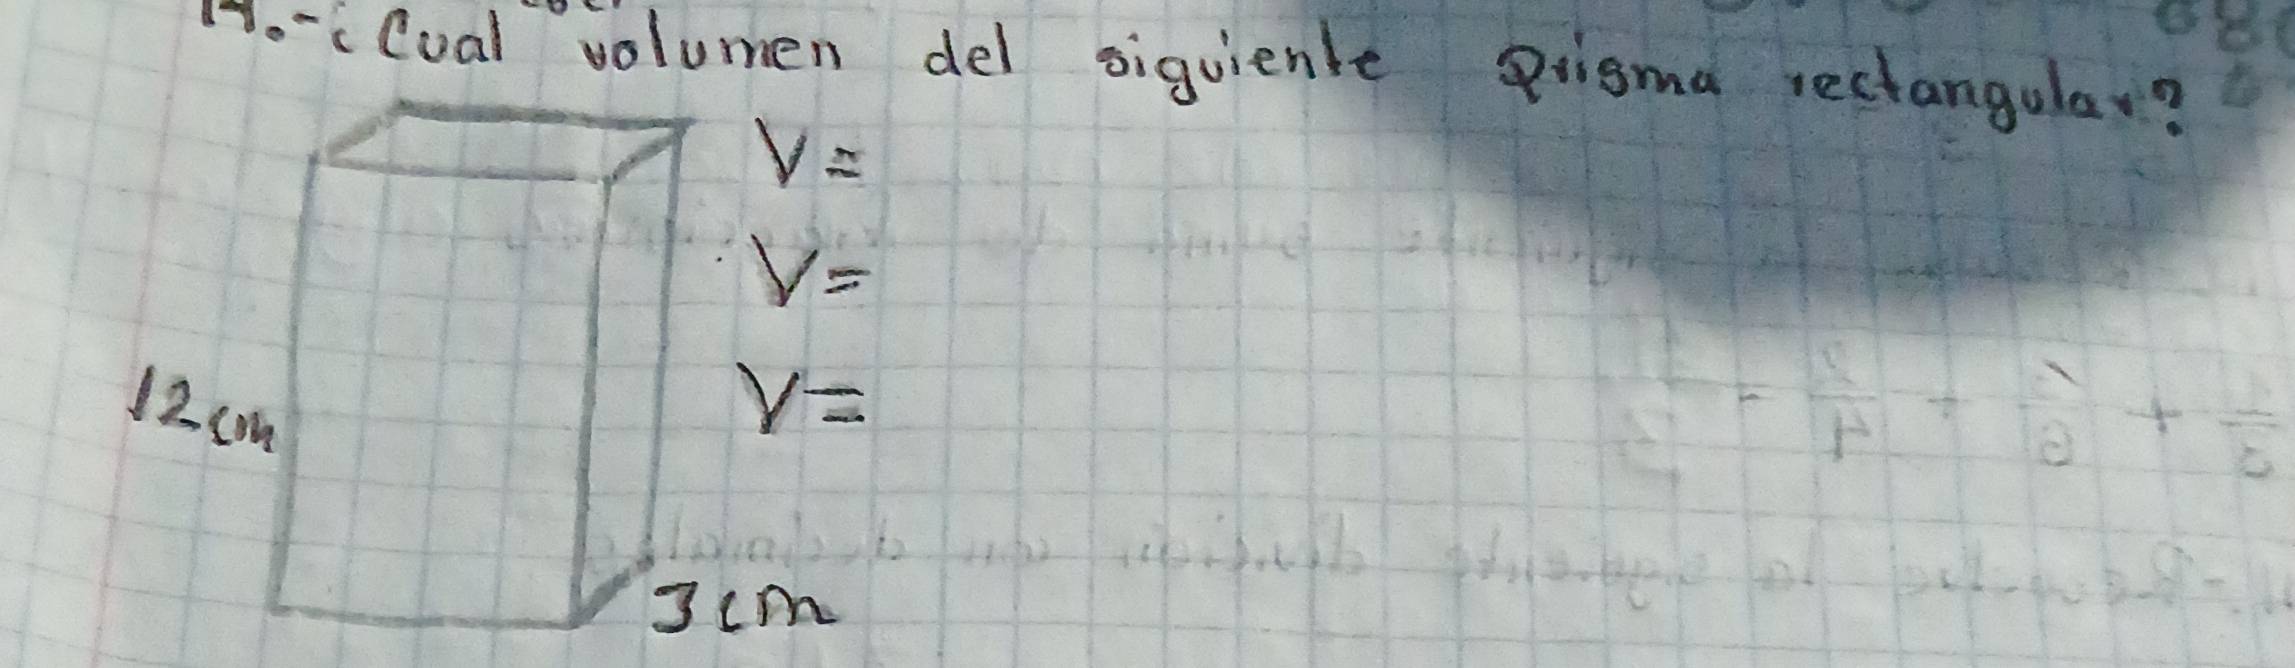 14.-¿Cual volumen del siguiente Prisma rectangular?
V=
V=
12cm
V=
3cm